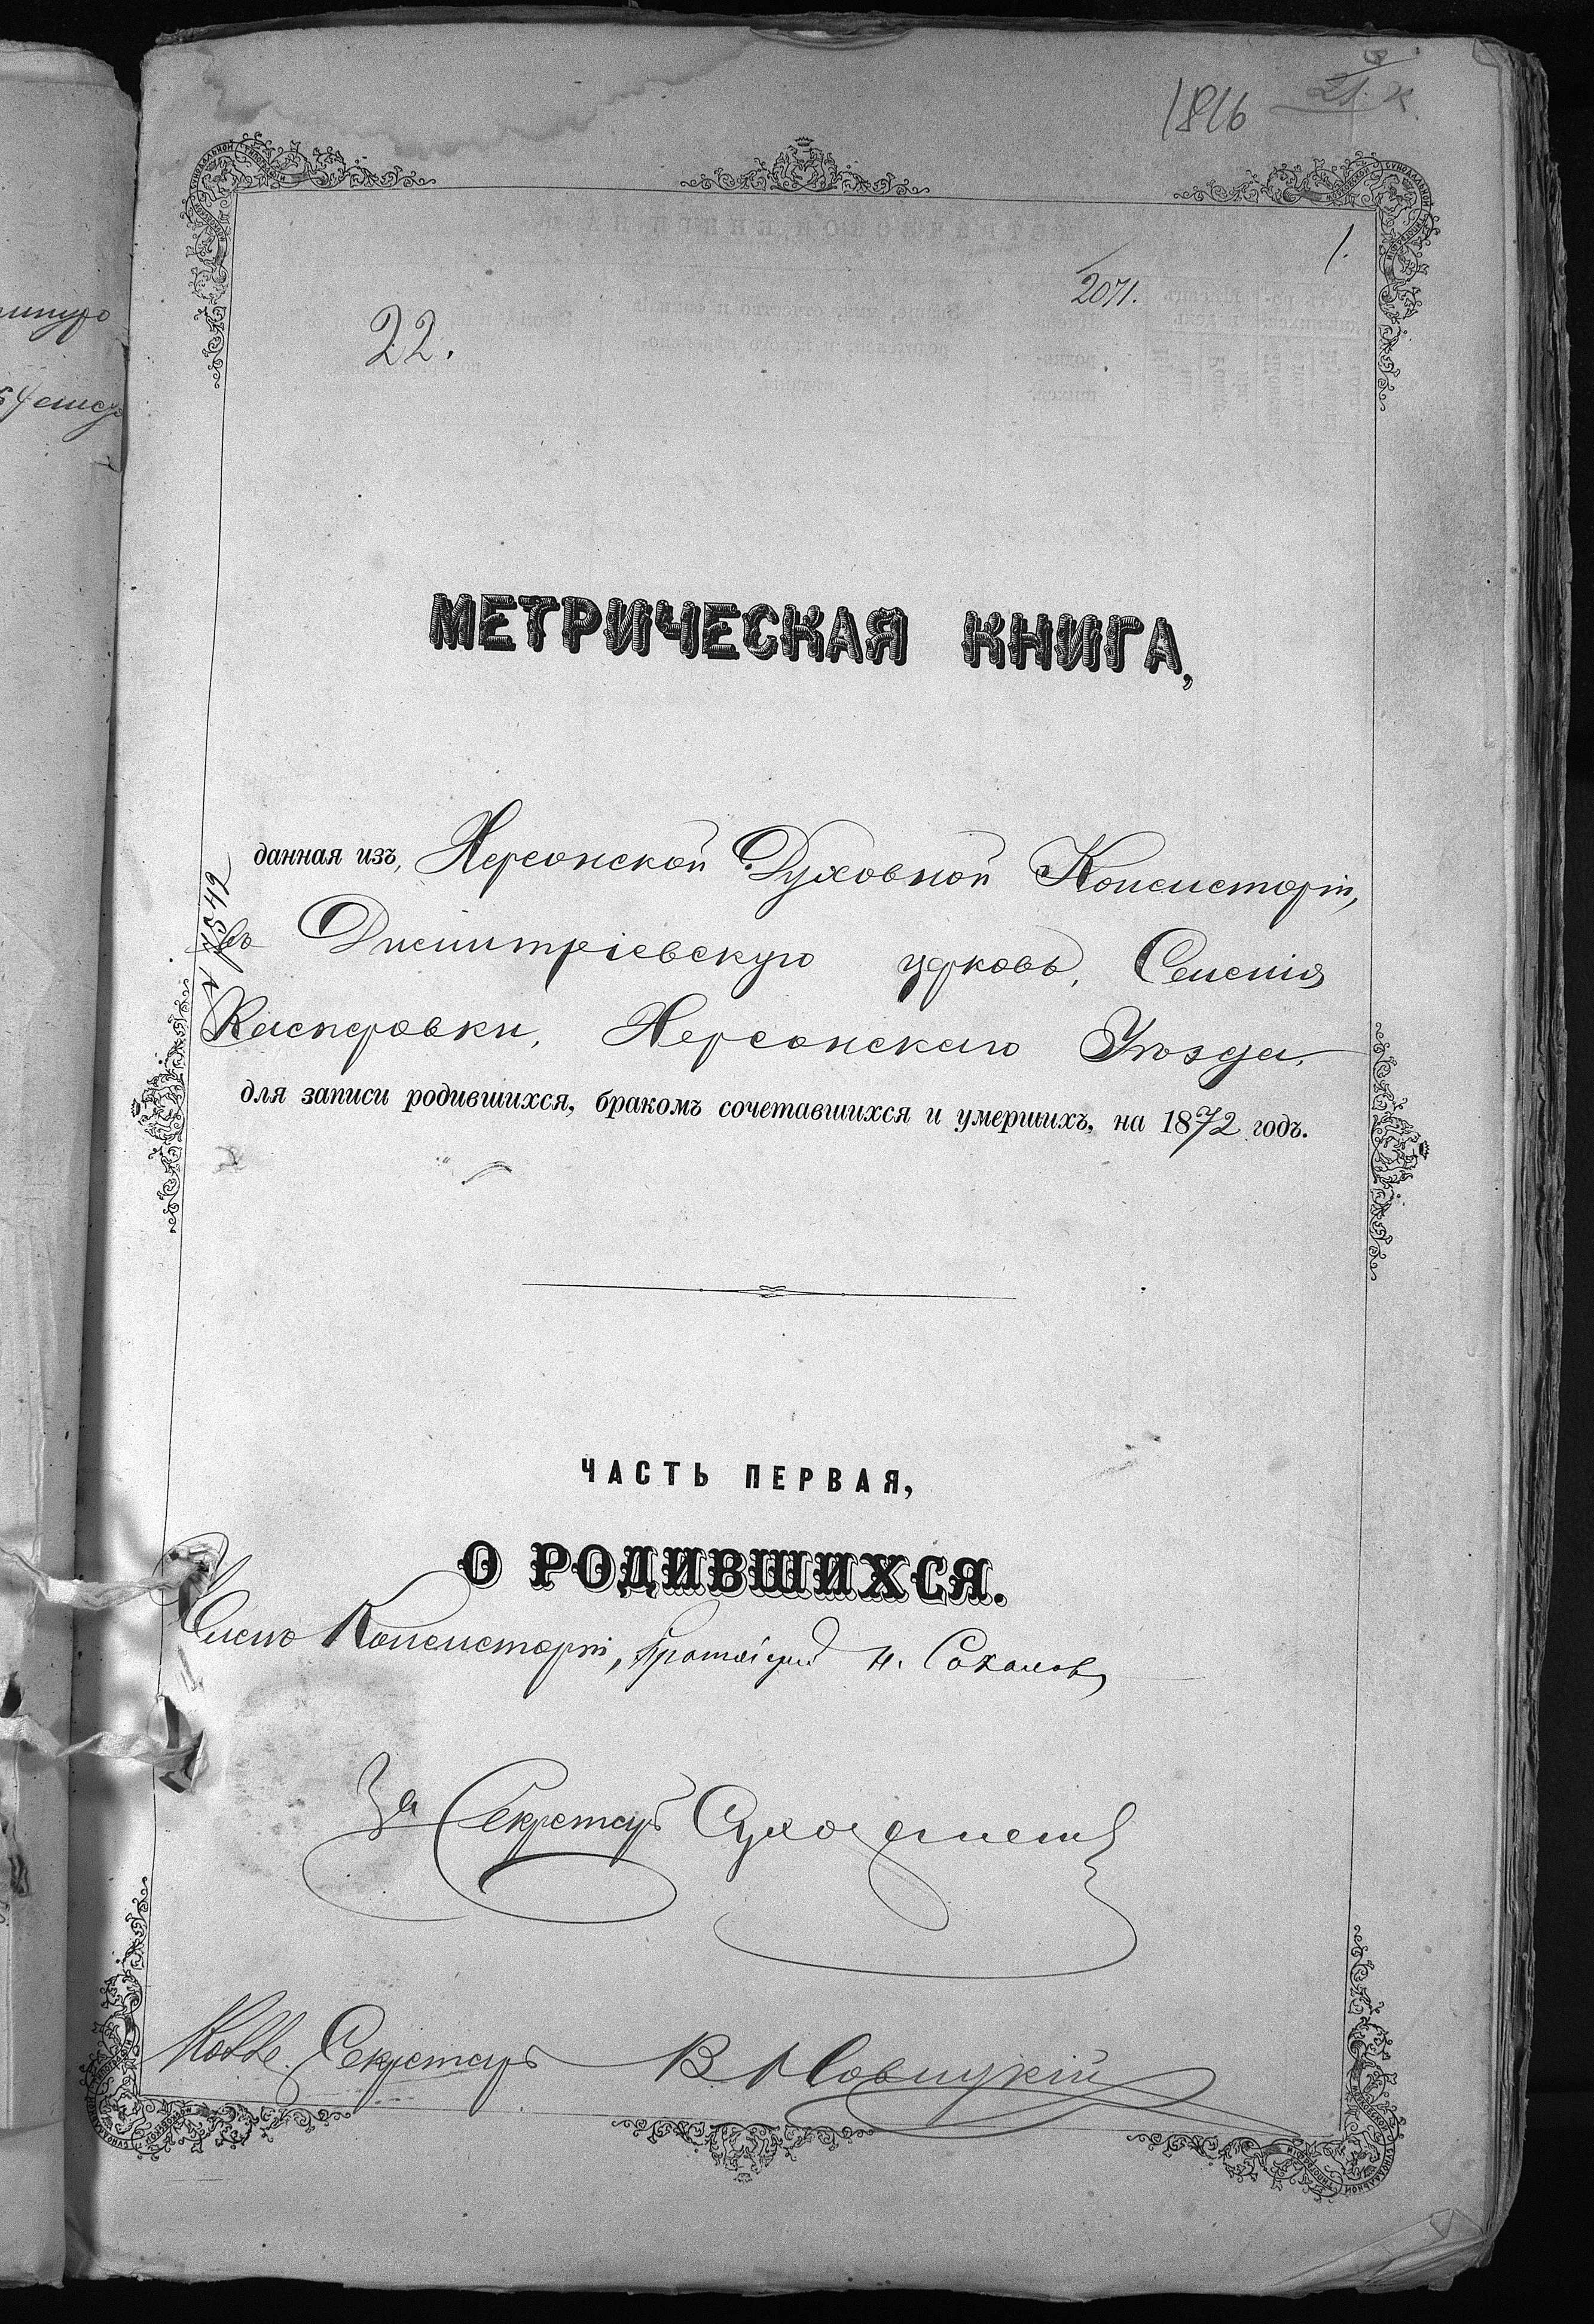 1816
21.
1.
2071.
22.
МЕТРИЧЕСКАЯ КНИГА,
данная изъ, Херсонской Духовной Консисторіи,
въ Димитріевскую церковь, Селенія
Касперовки, Херсонскаго Уѣзда,
для записи родившихся, бракомъ сочетавшихся и умершихъ, на 1872 годъ.
ЧАСТЬ ПЕРВАЯ,
О РОДИВШИХСЯ.
Членъ Консисторіи, Протоіерей Н. Соколовъ
За Секретарь
Секретарь В Новицкій